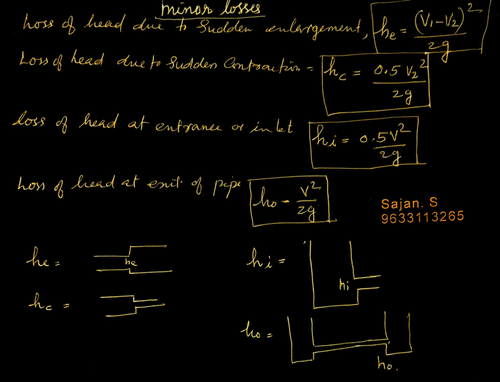 minor losses
Loss of head due to Sudden enlargement, he = (V₁-V₂)²/2g
Loss of head due to Sudden Contraction = hc = 0.5 V₂²/2g
loss of head at entrance or inlet hi = 0.5V²/2g
Loss of head at exit of pipe ho = V²/2g
Sajan. S
9633113265
he = he
hi = hi
hc =
ho = ho.